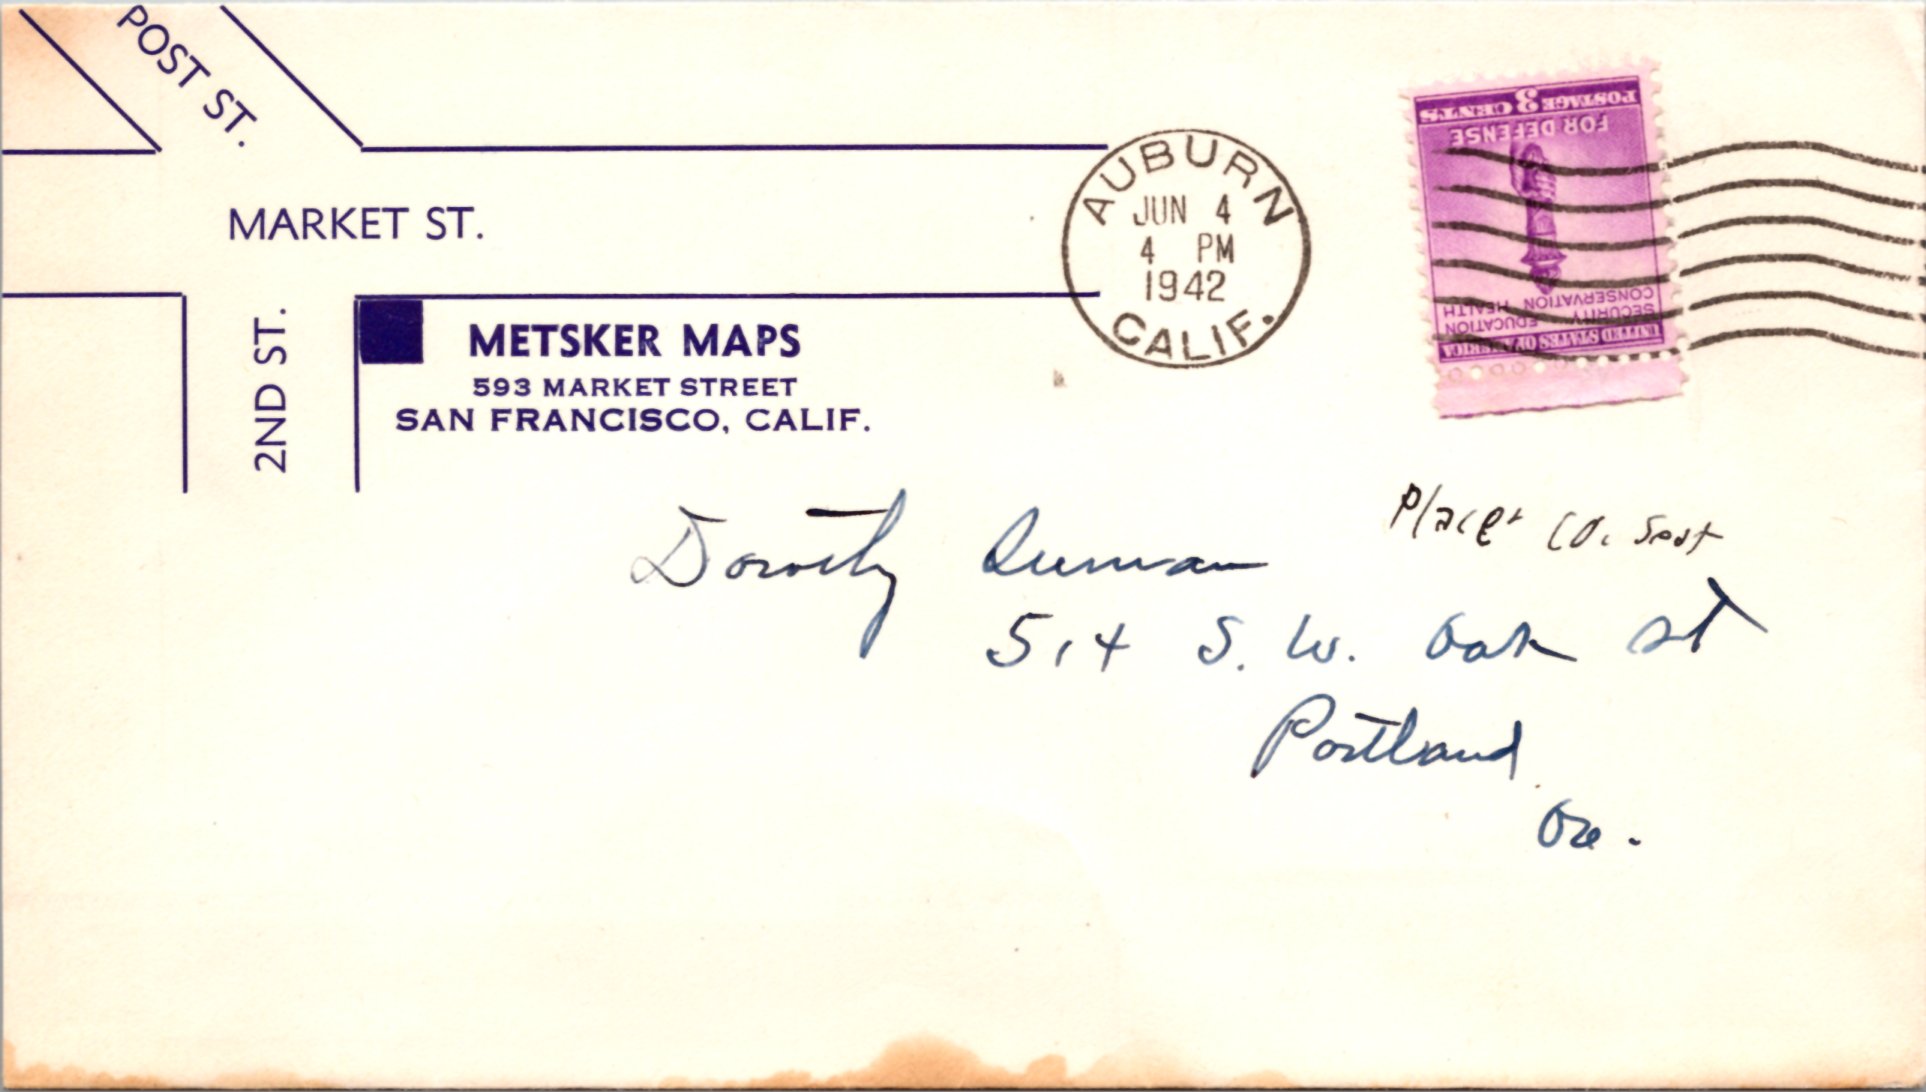 POST ST.
MARKET ST.
2ND ST.
METSKER MAPS
593 MARKET STREET
SAN FRANCISCO, CALIF.
AUBURN
JUN 4
4 PM
1942
CALIF.
UNITED STATES OF AMERICA
SECURITY EDUCATION
CONSERVATION HEALTH
FOR DEFENSE
POSTAGE 3 CENTS
Placer Co. Seat
Dorothy
514 S. W. Oak St
Portland
Ore.